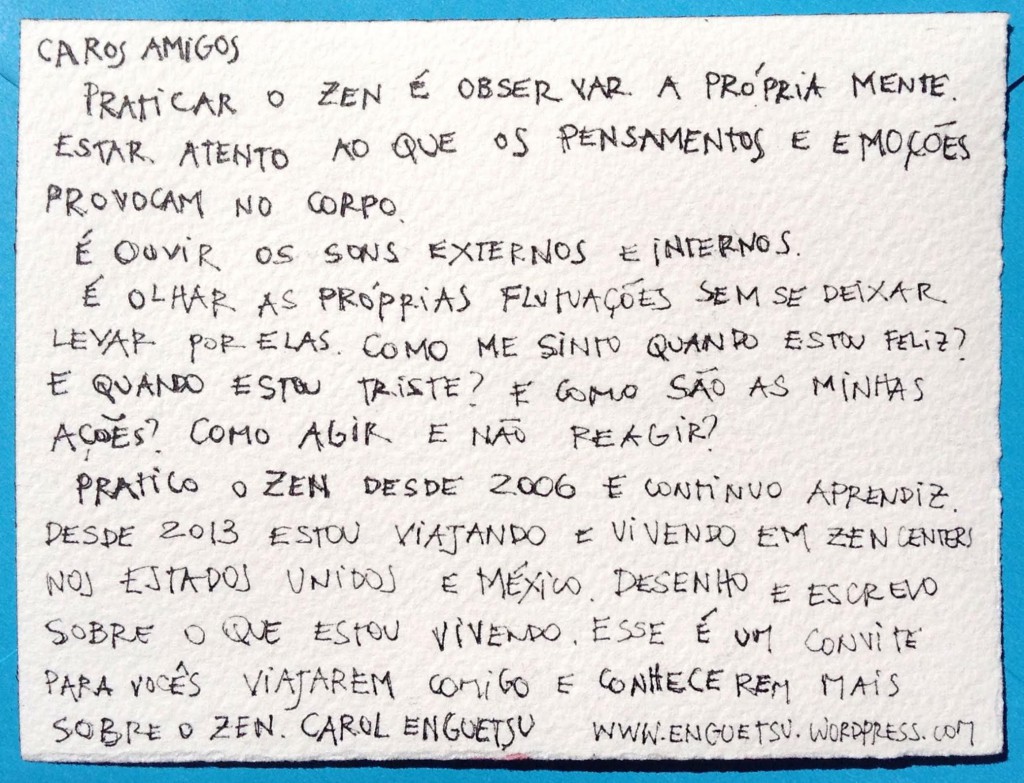 CAROS AMIGOS
PRATICAR O ZEN É OBSERVAR A PRÓPRIA MENTE.
ESTAR ATENTO AO QUE OS PENSAMENTOS E EMOÇÕES
PROVOCAM NO CORPO.
É OUVIR OS SONS EXTERNOS E INTERNOS.
É OLHAR AS PRÓPRIAS FLUTUAÇÕES SEM SE DEIXAR
LEVAR POR ELAS. COMO ME SINTO QUANDO ESTOU FELIZ?
E QUANDO ESTOU TRISTE? E COMO SÃO AS MINHAS
AÇÕES? COMO AGIR E NÃO REAGIR?
PRATICO O ZEN DESDE 2006 E CONTINUO APRENDIZ.
DESDE 2013 ESTOU VIAJANDO E VIVENDO EM ZEN CENTERS
NOS ESTADOS UNIDOS E MÉXICO. DESENHO E ESCREVO
SOBRE O QUE ESTOU VIVENDO. ESSE É UM CONVITE
PARA VOCÊS VIAJAREM COMIGO E CONHECEREM MAIS
SOBRE O ZEN. CAROL ENGUETSU WWW.ENGUETSU.WORDPRESS.COM